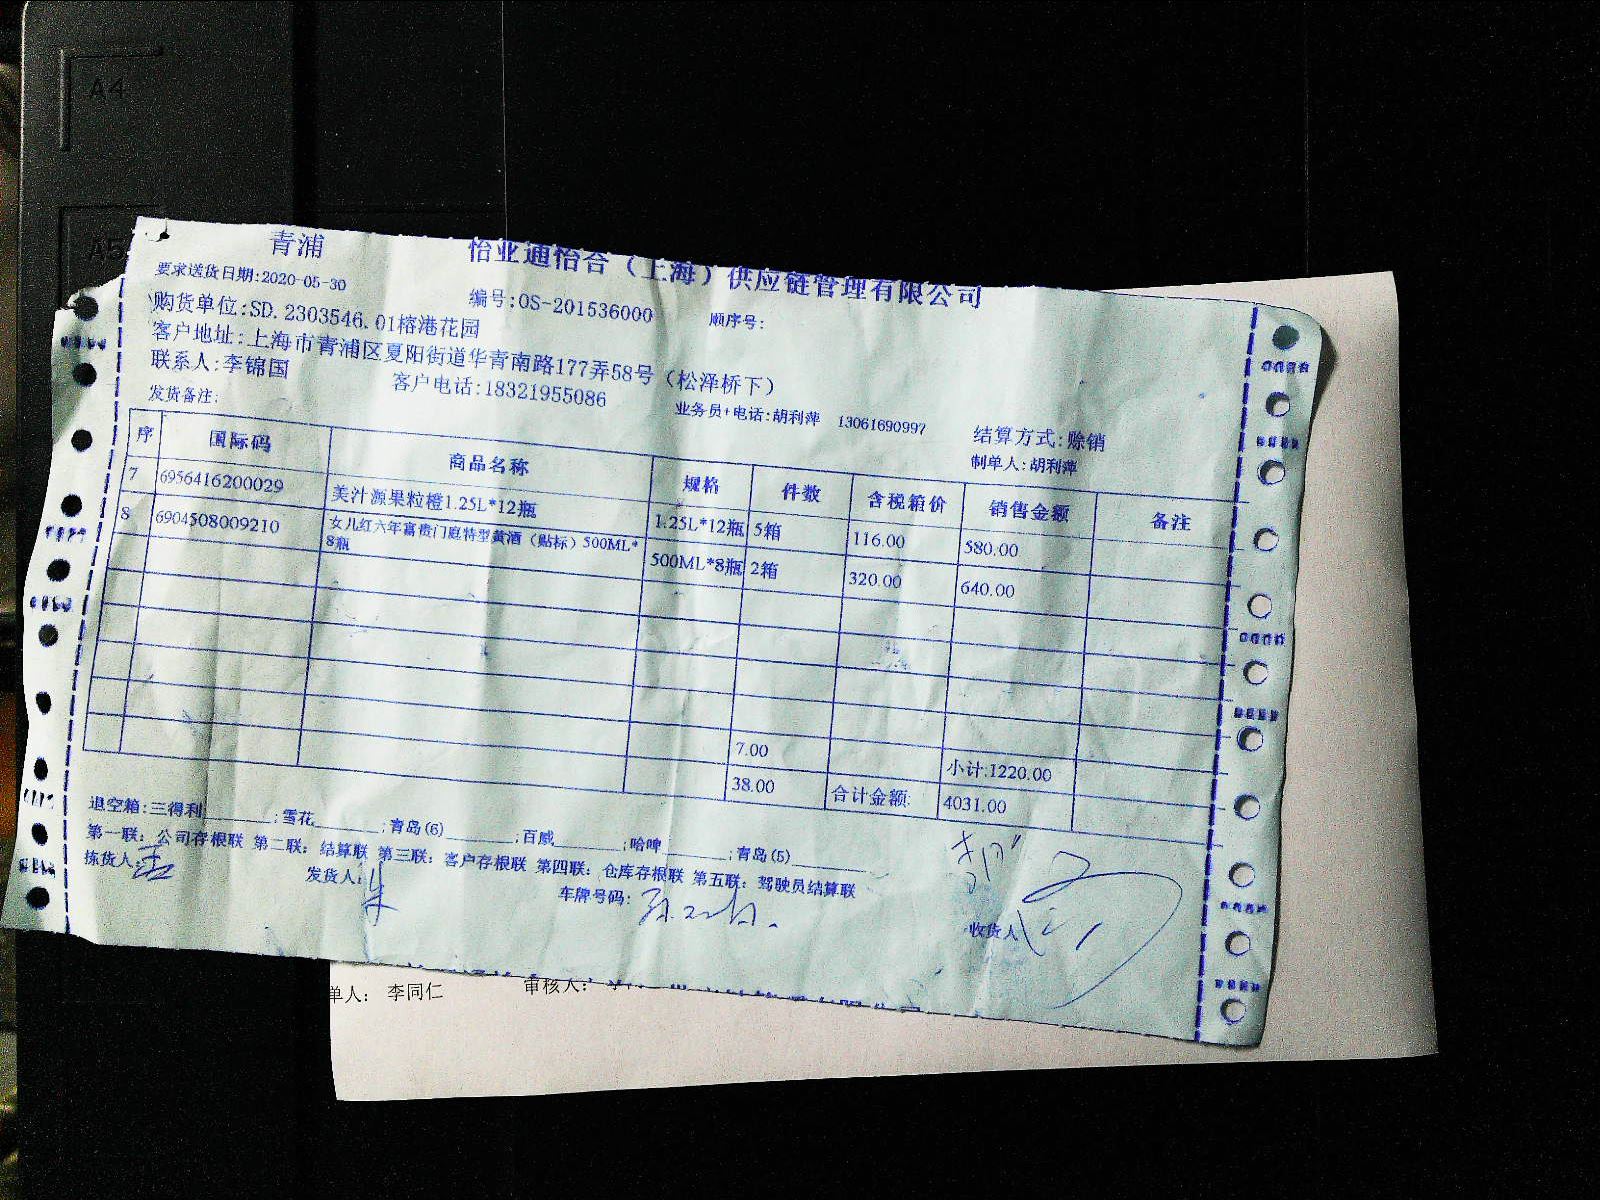 A4
A5
青浦
怡亚通怡合（上海）供应链管理有限公司
要求送货日期:2020-05-30
编号:OS-201536000
顺序号:
购货单位:SD.2303546.01榕港花园
客户地址:上海市青浦区夏阳街道华青南路177弄58号（松泽桥下）
联系人:李锦国
客户电话:18321955086
业务员+电话:胡利萍 13061690997
结算方式:赊销
发货备注:
制单人:胡利萍
序 国际码 商品名称 规格 件数 含税箱价 销售金额 备注
7 6956416200029 美汁源果粒橙1.25L*12瓶 1.25L*12瓶 5箱 116.00 580.00
8 6904508009210 女儿红六年富贵门庭特型黄酒（贴标）500ML*8瓶 500ML*8瓶 2箱 320.00 640.00
7.00 小计:1220.00
38.00 合计金额: 4031.00
退空箱:三得利________;雪花________;青岛(6)________;百威________;哈啤________;青岛(5)________
第一联：公司存根联 第二联：结算联 第三联：客户存根联 第四联：仓库存根联 第五联：驾驶员结算联
拣货人:
发货人:
车牌号码:
收货人
单人： 李同仁
审核人：